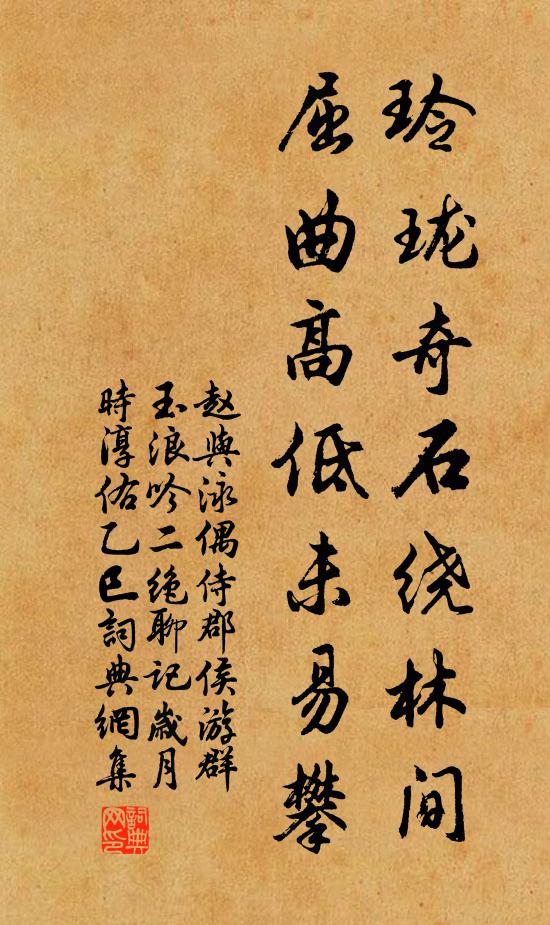 玲珑奇石绕林间
屈曲高低未易攀
赵与泳偶侍郡侯游群
玉浪吟二绝聊记岁月
时淳佑乙巳词典网集
词典网印